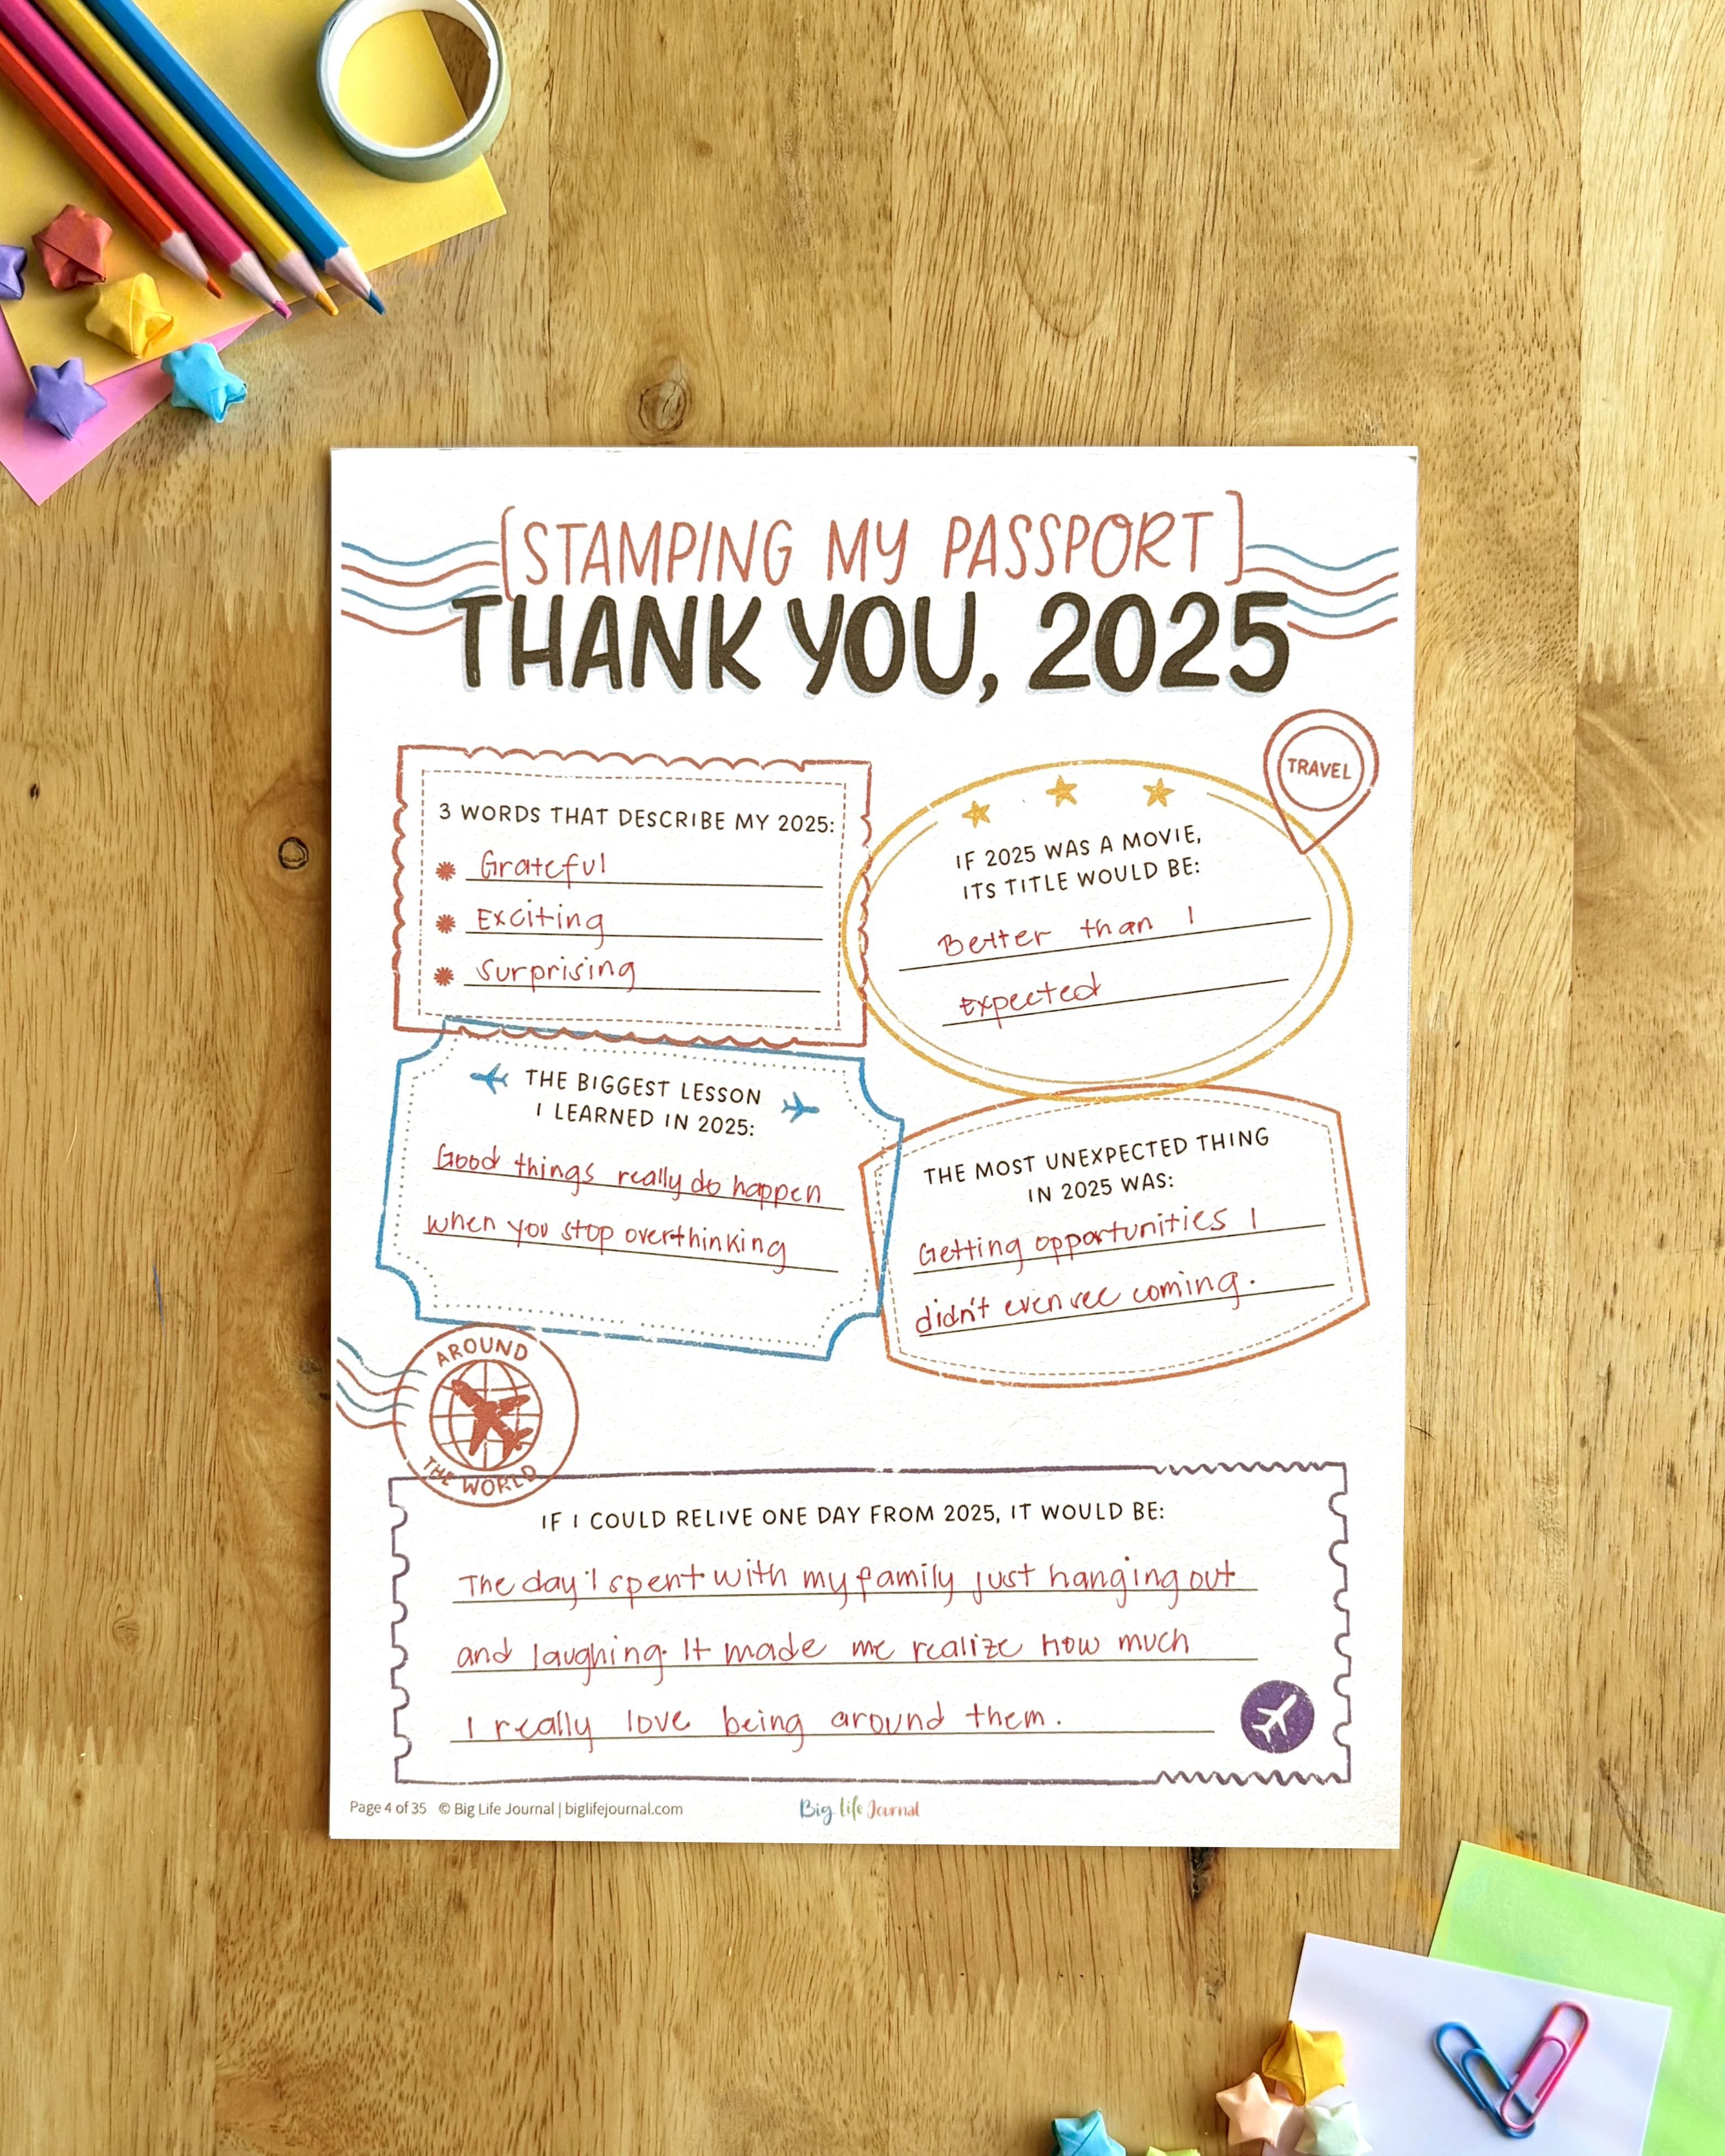 [STAMPING MY PASSPORT]
THANK YOU, 2025
TRAVEL
3 WORDS THAT DESCRIBE MY 2025:
Grateful
Exciting
Surprising
IF 2025 WAS A MOVIE,
ITS TITLE WOULD BE:
Better than I
Expected
THE BIGGEST LESSON
I LEARNED IN 2025:
Good things really do happen
when you stop overthinking
THE MOST UNEXPECTED THING
IN 2025 WAS:
Getting opportunities I
didn't even see coming.
AROUND
THE WORLD
IF I COULD RELIVE ONE DAY FROM 2025, IT WOULD BE:
The day I spent with my family just hanging out
and laughing. It made me realize how much
I really love being around them.
Page 4 of 35 © Big Life Journal | biglifejournal.com
Big Life Journal